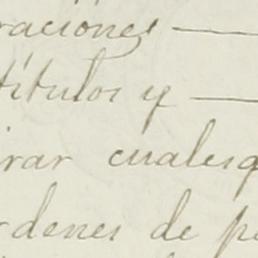 raciones —
títulos y —
irar cualesq
rdenes de p